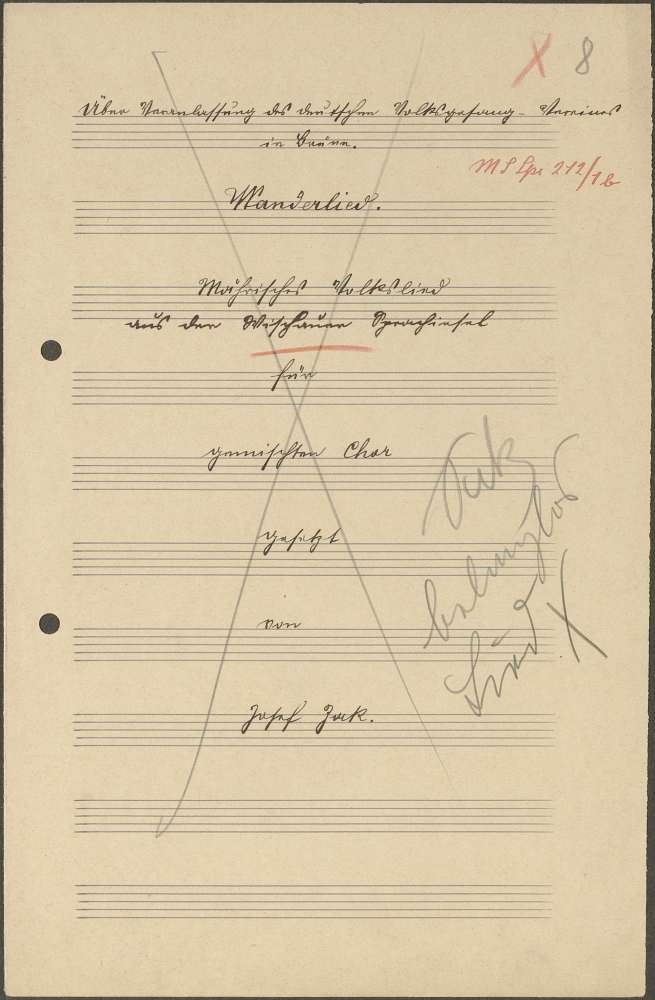 X 8
Über Veranlassung des deutschen Volksgesang-Vereines
in Brünn.
MS Spr 212/1b
Wanderlied.
Mährisches Volkslied
aus der Wischauer Sprachinsel
für
gemischten Chor
gesetzt
von
Josef Zak.
Lied X